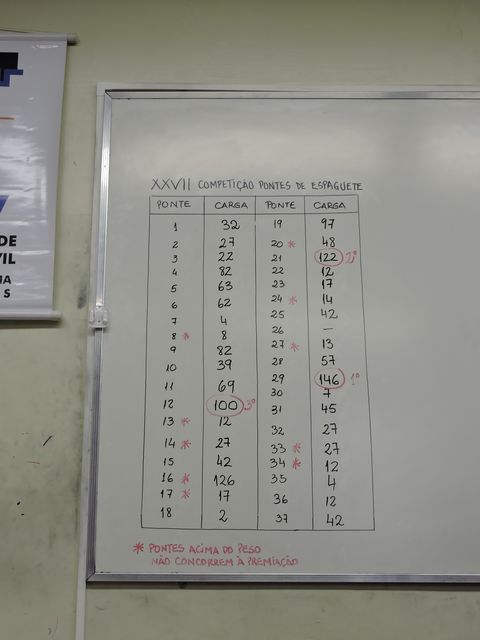 XXVII COMPETIÇÃO PONTES DE ESPAGUETE
PONTE CARGA PONTE CARGA
1 32 19 97
2 27 20 * 48
3 22 21 122 2º
4 82 22 12
5 63 23 17
6 62 24 * 14
7 4 25 42
8 * 8 26 —
9 82 27 * 13
10 39 28 57
11 69 29 146 1º
12 100 3º 30 7
13 * 12 31 45
14 * 27 32 27
15 42 33 * 27
16 * 126 34 * 12
17 * 17 35 4
18 2 36 12
37 42
* PONTES ACIMA DO PESO
NÃO CONCORREM À PREMIAÇÃO
DE
VIL
IA
S